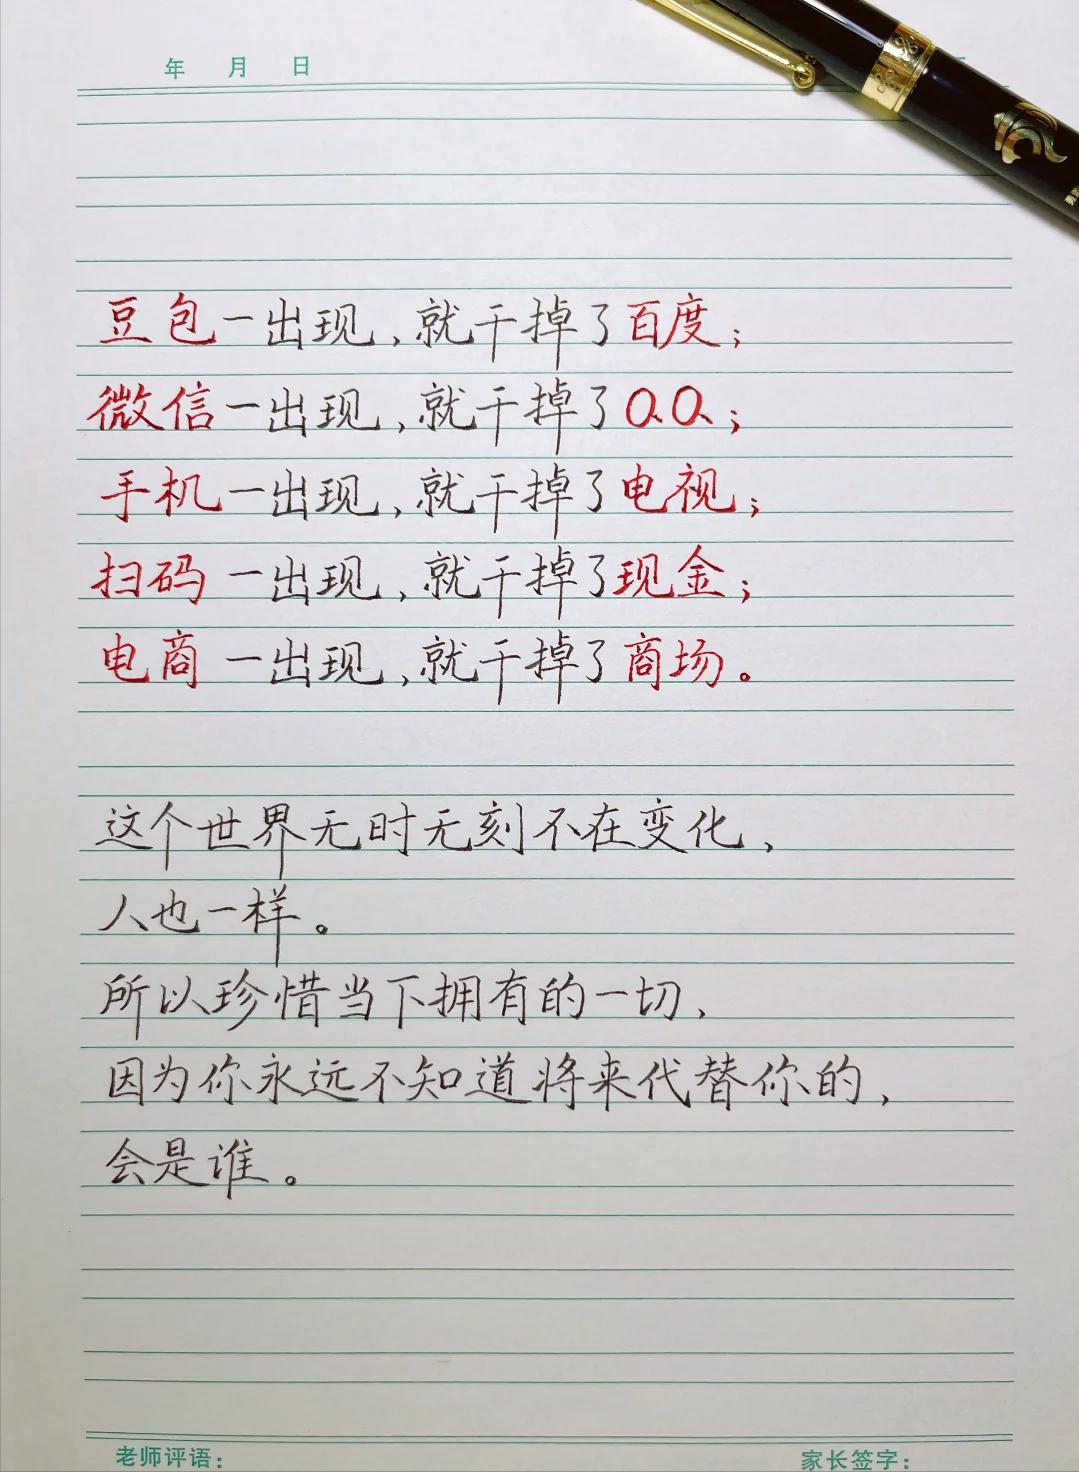 年 月 日
豆包一出现,就干掉了百度;
微信一出现,就干掉了QQ;
手机一出现,就干掉了电视;
扫码一出现,就干掉了现金;
电商一出现,就干掉了商场。
这个世界无时无刻不在变化,
人也一样。
所以珍惜当下拥有的一切,
因为你永远不知道将来代替你的,
会是谁。
老师评语: 家长签字: